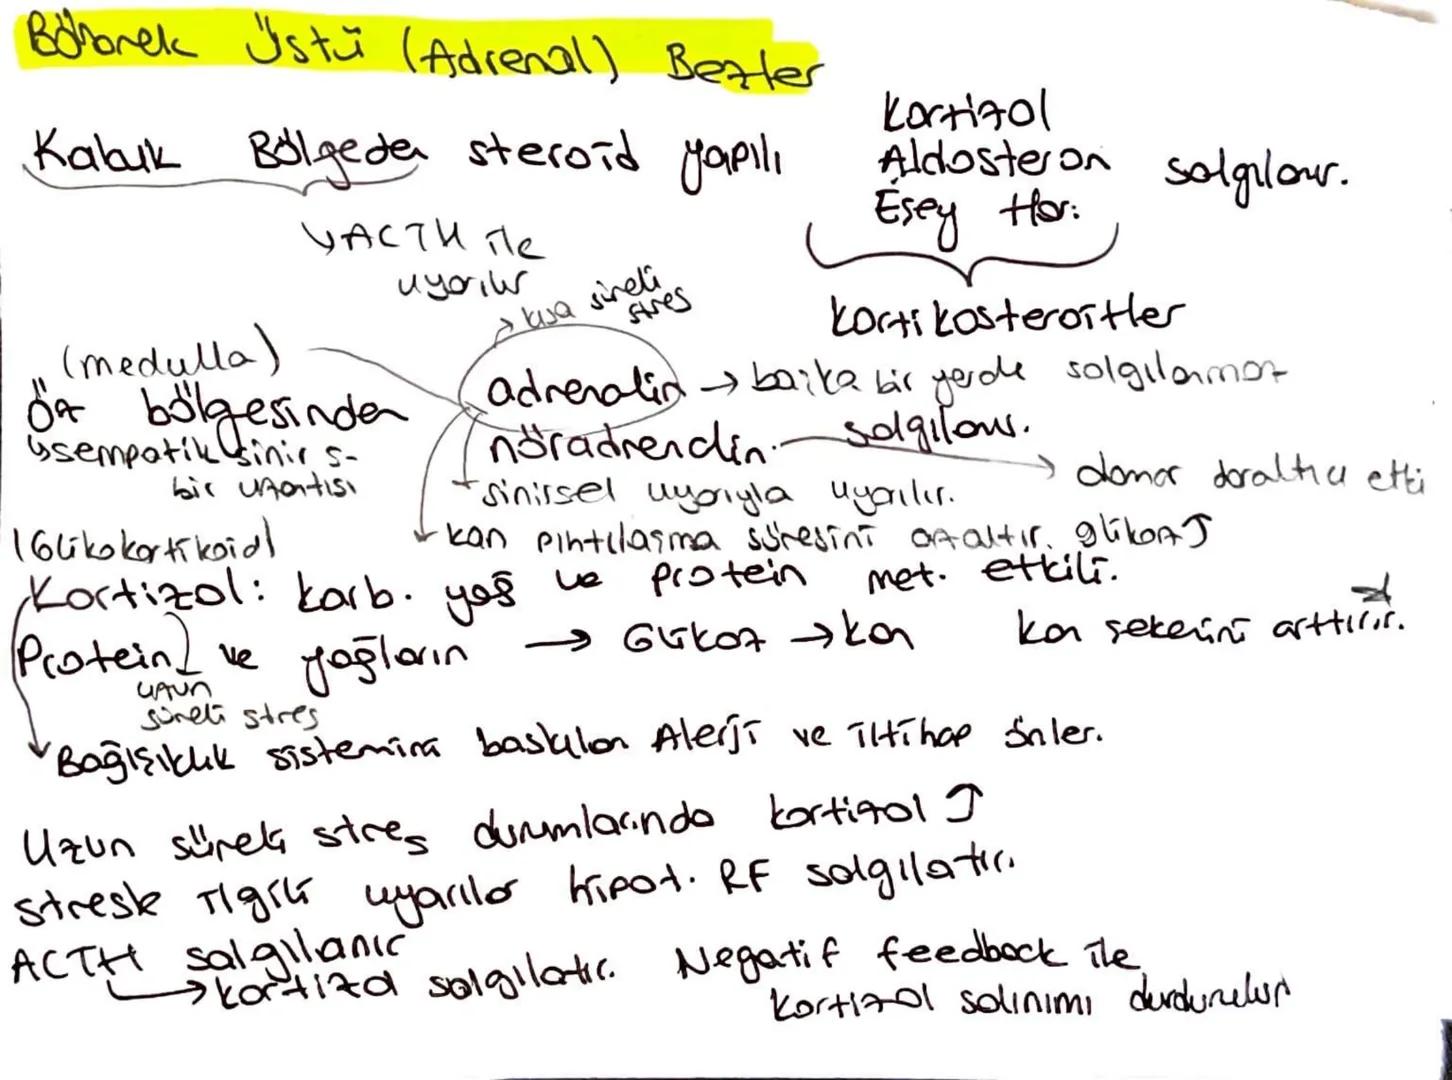 Böbrek Üstü (Adrenal) Bezler
Kabuk Bölgeden steroid yapılı
Kortizol
Aldosteron
Eşey Hor.
salgılanır.
ACTH ile
uyarılır
Kortikosteroitler
→ kısa süreli
stres
(medulla)
Öz bölgesinden
sempatik sinir s.
bir uzantısı
adrenalin → başka bir yerde salgılanmaz
nöradrenalin salgılanır.
→ damar daraltıcı etki
sinirsel uyarıyla uyarılır.
kan pıhtılaşma süresini azaltır. glikoz↑
(Glikokortikoid)
Kortizol: karb. yağ ve protein met. etkili.
Protein ve yağların → Glikoz → kan kan şekerini arttırır.
uzun
süreli stres
Bağışıklık sistemini baskılar Alerji ve iltihap önler.
Uzun süreli stres durumlarında kortizol ↑
stresle ilgili uyarılar hipot. RF salgılatır.
ACTH salgılanır
→ kortizol salgılatır.
Negatif feedback ile
kortizol salınımı durdurulur